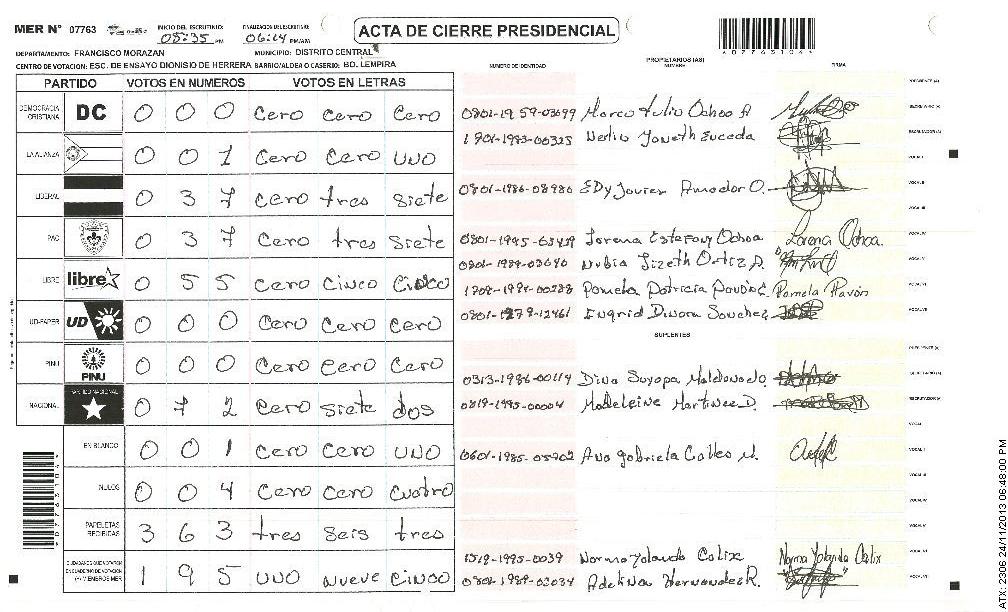 MER N° 07763 INICIO DEL ESCRUTINIO: 05:35 PM FINALIZACION DE ESCRUTINIO: 06:24 PM/AM ACTA DE CIERRE PRESIDENCIAL
DEPARTAMENTO: FRANCISCO MORAZAN MUNICIPIO: DISTRITO CENTRAL
CENTRO DE VOTACION: ESC. DE ENSAYO DIONISIO DE HERRERA BARRIO/ALDEA O CASERIO: BO. LEMPIRA
PARTIDO VOTOS EN NUMEROS VOTOS EN LETRAS
DEMOCRACIA CRISTIANA DC 0 0 0 Cero Cero Cero
LA ALIANZA 0 0 1 Cero Cero uno
LIBERAL 0 3 7 Cero tres siete
PAC 0 3 7 Cero tres siete
LIBRE libre 0 5 5 Cero Cinco Cinco
UD-FAPER UD 0 0 0 Cero Cero Cero
PINU PINU 0 0 0 Cero Cero Cero
NACIONAL PARTIDO NACIONAL 0 7 2 Cero siete dos
EN BLANCO 0 0 1 Cero Cero uno
NULOS 0 0 4 Cero Cero Cuatro
PAPELETAS RECIBIDAS 3 6 3 tres seis tres
CIUDADANOS QUE VOTARON EN CUADERNO DE VOTACION (+) MIEMBROS MER 1 9 5 uno nueve Cinco
NUMERO DE IDENTIDAD PROPIETARIOS (AS) NOMBRE FIRMA
0801-1959-03699 Marco Tulio Ochoa A
1701-1993-00325 Yaneth Euceda
0801-1986-08980 EDy Javier Amador O.
Lorena Estefany Ochoa Lorena Ochoa
0801-1989-03690 Nubia Lizeth Ortiz A.
Pamela Patricia Pavón Pamela Pavón
Engrid Dinora Sanchez
SUPLENTES
0313-1986-00114 Dina Suyapa Maldonado
0819-1995-00004 Madeleine Martinez D.
Ana Gabriela
1519-1995-0039 Norma Yolanda Calix Norma Yolanda Calix
0801-1989-03034 Adelina Hernandez R.
ATX: 2306 24/11/2013 06:48:00 PM